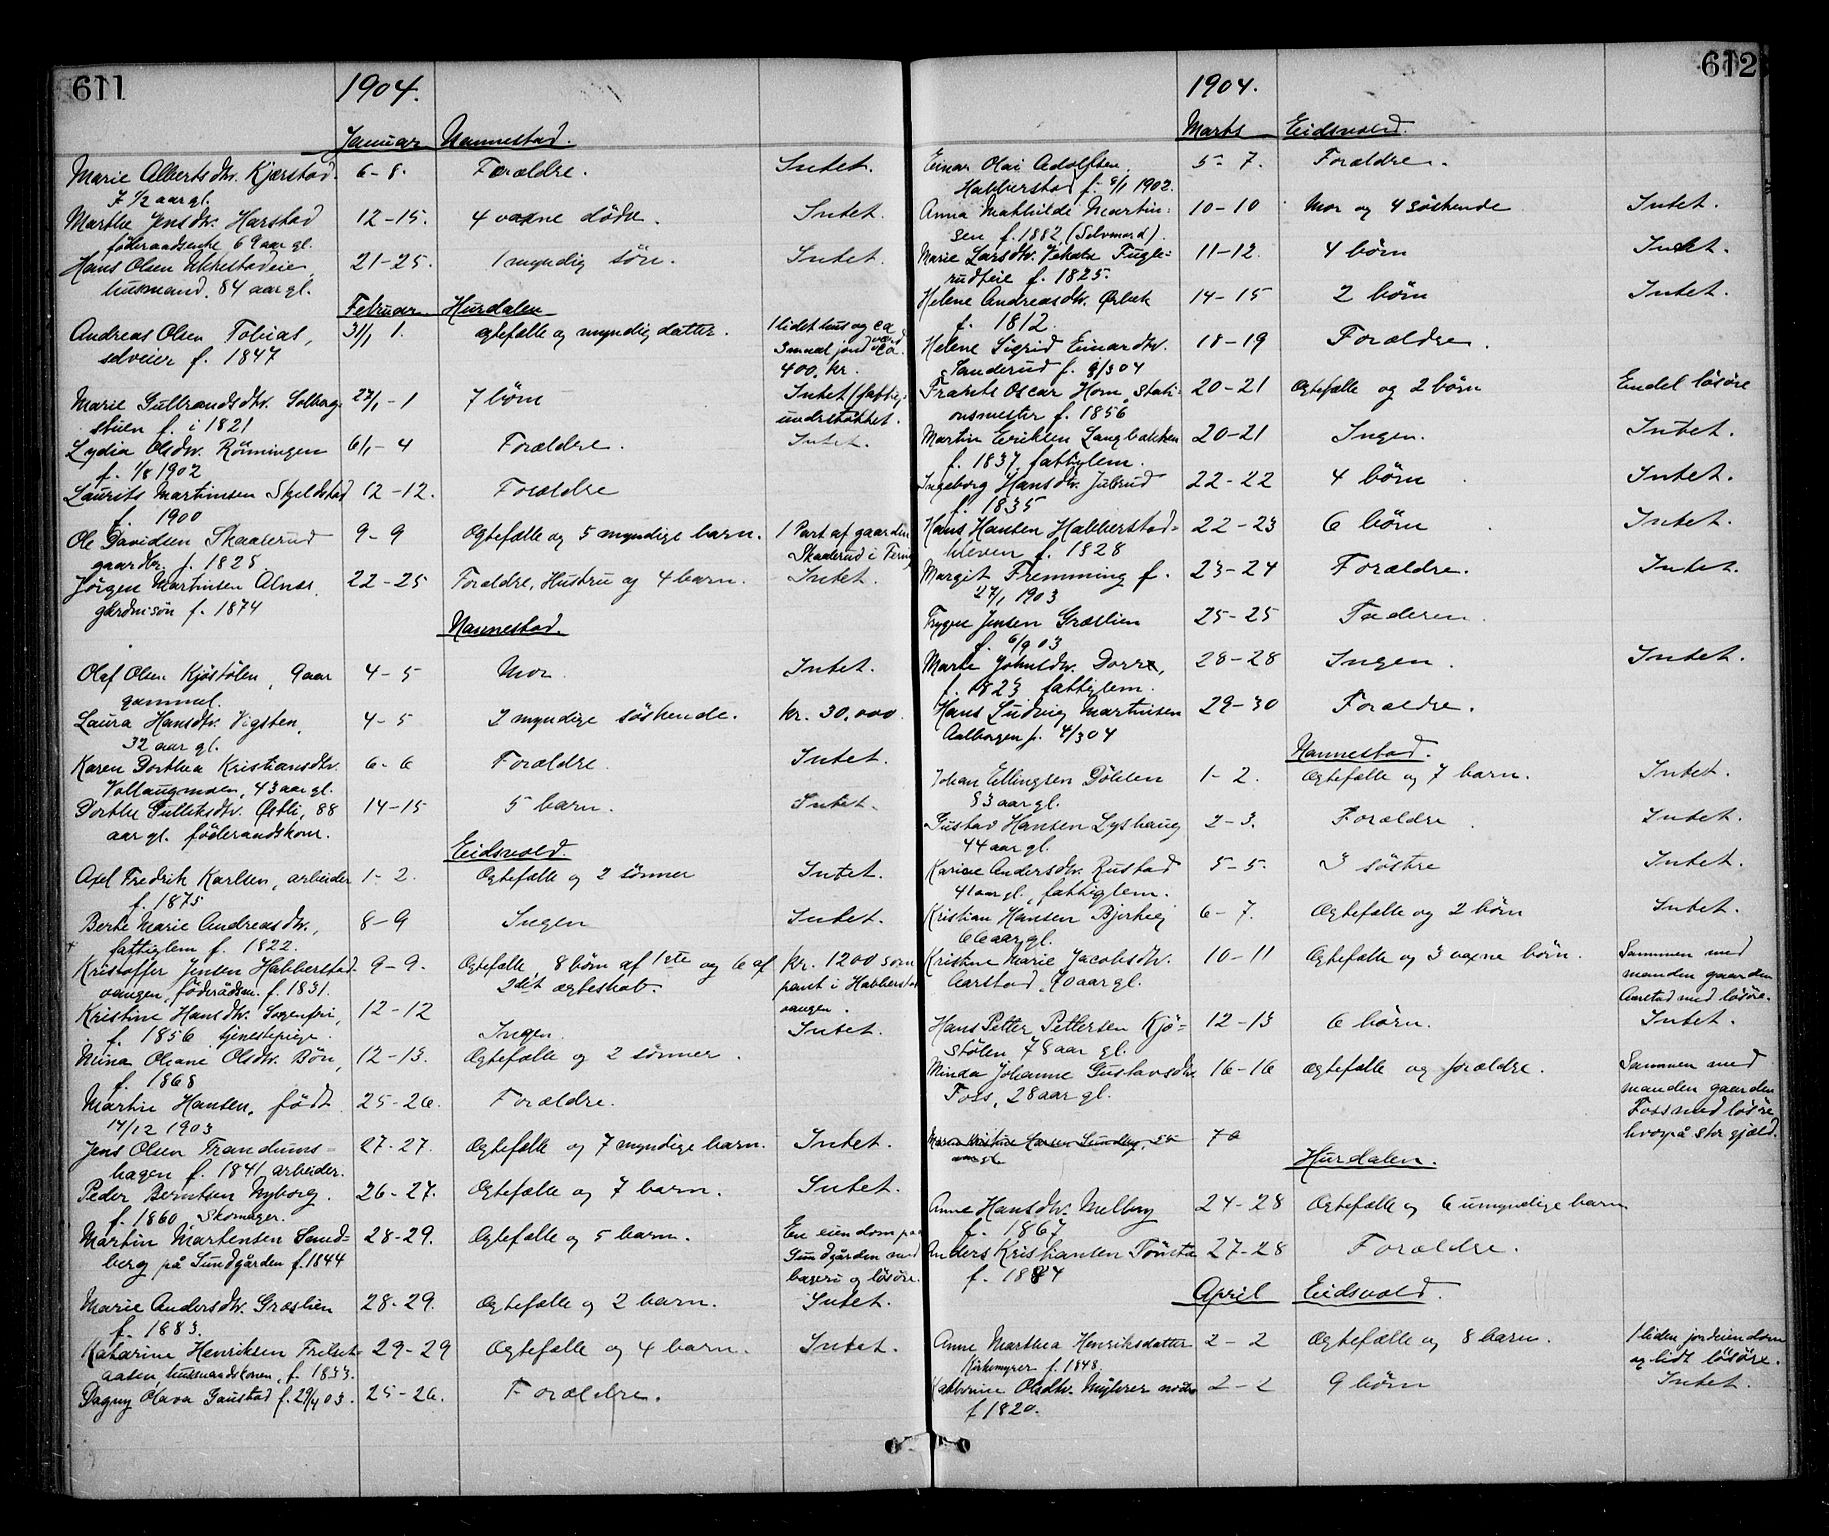 611
1904.
Januar Nannestad.
Marie Albertsdtr. Kjærstad. 6-8. Forældre. Intet.
7 1/2 aar gl.
Marthe Jensdtr. Harstad 12-15. 4 voxne døtre. Intet.
föderaadsenke 69 aar gl.
Hans Olsen 21-25. 1 myndig sön. Intet.
husmand. 84 aar gl.
Februar. Hurdalen
Andreas Olsen Tobias, 31/1 1. ægtefælle og myndig datter. 1 lidet hus og ca
selveier f. 1847 3 maal jord værd ca.
400. kr.
Marie Gulbrandsdtr. Solberg- 27/1-1 7 börn Intet (fattig-
stuen f. i 1821 understøttet.
Lydia Olsdtr. Rönningen 6/1-4 Forældre. Intet.
f. 1/8 1902
Laurits Martinsen Skjeldstad 12-12. Forældre
f. 1900
Ole Davidsen Skaalerud 9-9 Ægtefælle og 5 myndige barn. 1 Part af gaarden
gaardbr. f. 1825 Skaalerud i
Jörgen Martinsen Alnæs, 22-25 Forældre, Hustru og 4 barn. Intet.
gardmisön f. 1874
Nannestad.
Olaf Olsen Kjöstölen, 9 aar 4-5 Mor. Intet.
gammel.
Laura Hansdtr. Vigsten, 4-5 2 myndige söskende. kr. 30.000.
32 aar gl.
Karen Dorthea Kristiansdtr. 6-6 Forældre. Intet.
Vollaugmoen, 43 aar gl.
Dorthe Gulliksdtr. Østli, 88 14-15 5 barn. Intet.
aar gl. föderaadskone.
Eidsvold.
Axel Fredrik Karlsen, arbeider 1-2. Ægtefælle og 2 sönner Intet.
f. 1875
Berte Marie Andreasdtr., 8-9 Ingen Intet.
fattiglem f. 1822.
Kristoffer Jensen Habberstad 9-9. Ægtefælle, 8 börn af 1ste og 6 af kr. 1200 som
vangen, föderådsm. f. 1831. 2det ægteskab. pant i Habberstad
vangen.
Kristine Hansdtr. Sorgenfri, 12-12 Ingen. Intet.
f. 1856 tjenestepige.
Mina Oliane Olsdtr. Bön, 12-13. Ægtefælle og 2 sönner.
f. 1868
Martin Hansen, födt 25-26. Forældre.
14/12 1903
Jens Olsen Trandums- 27-27. Ægtefælle og 7 myndige barn. Intet.
hagen f. 1841, arbeider.
Peder Berntsen Nyborg. 26-27. Ægtefælle og 7 barn. Intet.
f. 1860 Skomager.
Martin Martensen Sand- 28-29. Ægtefælle og 5 barn. En eiendom paa
berg på Sundgården f. 1844 Sundgården med
bageri og lösöre.
Marie Andersdtr. Græslien 28-29. Ægtefælle og 2 barn. Intet.
f. 1883.
Katarine Henriksen Frilset- 29-29 Ægtefælle og 4 barn. Intet.
husmandskonen, f. 1833.
Dagny Olava Gaustad f. 29/4 03. 25-26. Forældre.
612
1904.
Marts Eidsvold.
Einar Olai Adolfsen 5-7. Forældre.
Habberstad f. 8/1 1902.
Anna Mathilde Martin- 10-10 Mor og 4 söskende Intet.
sen f. 1882, (Selvmord).
Marie Larsdtr. Fugle- 11-12. 4 börn Intet.
rudfeie f. 1825.
Helene Andreasdtr. Ørbek 14-15 2 börn Intet.
f. 1812.
Helene Sigrid Einarsdtr. 18-19 Forældre.
Sanderud f. 9/3 04
Frants Oscar Horn, stati- 20-21 Ægtefælle og 2 börn Endel lösöre
onsmester f. 1856
Martin Eriksen Langbakken 20-21 Ingen. Intet.
f. 1837, fattiglem.
Ingeborg Hansdtr. Julsrud 22-22 4 börn Intet.
f. 1835
Hans Hansen Habberstad- 22-23 6 börn Intet.
kleven f. 1828
Margit Fremming f. 23-24 Forældre. Intet.
27/1 1903
Trygve Jensen Græslien 25-25 Faderen.
f. 6/9 03
Marie Johnsdtr. Dorre, 28-28 Ingen. Intet.
f. 1823 fattiglem.
Hans Ludvig Martinsen 29-30 Forældre.
Aalborgen f. 4/3 04
Nannestad.
Johan Ellingsen Döhlen 1-2. Ægtefælle og 7 barn. Intet.
83 aar gl.
Gustav Hansen Lyshaug 2-3. Forældre Intet.
44 aar gl.
Karine Andersdtr. Rustad 5-5. 3 söstre Intet.
41 aar gl., fattiglem.
Kristian Hansen Bjerkeg 6-7. Ægtefælle og 2 börn Intet.
66 aar gl.
Kristine Marie Jacobsdtr. 10-11 Ægtefælle og 3 voxne börn. Sammen med
Aarstad, 70 aar gl. manden gaarden
Aarstad med lösöre.
Hans Petter Pettersen Kjö- 12-13 6 börn. Intet.
stölen 78 aar gl.
Minda Johanne Gustavsdtr. 16-16 Ægtefælle og forældre. Sammen med
Foss, 28 aar gl. manden gaarden
Foss med lösöre,
hvorpå stor gjæld.
Maren Kristine Larsen Sundby, 58
aar gl.
Hurdalen.
Anne Hansdtr. Melby 24-28 Ægtefælle og 6 umyndige barn
f. 1867
Anders Kristiansen Tömte 27-28 Forældre.
f. 1884
April Eidsvold.
Anne Marthea Henriksdatter 2-2 Ægtefælle og 8 barn. 1 liden jordeiendom
Kirkemyrer f. 1848. og lidt lösöre.
Kathrine Olsdtr. Myhrer nordre 2-2 9 börn Intet.
f. 1820.